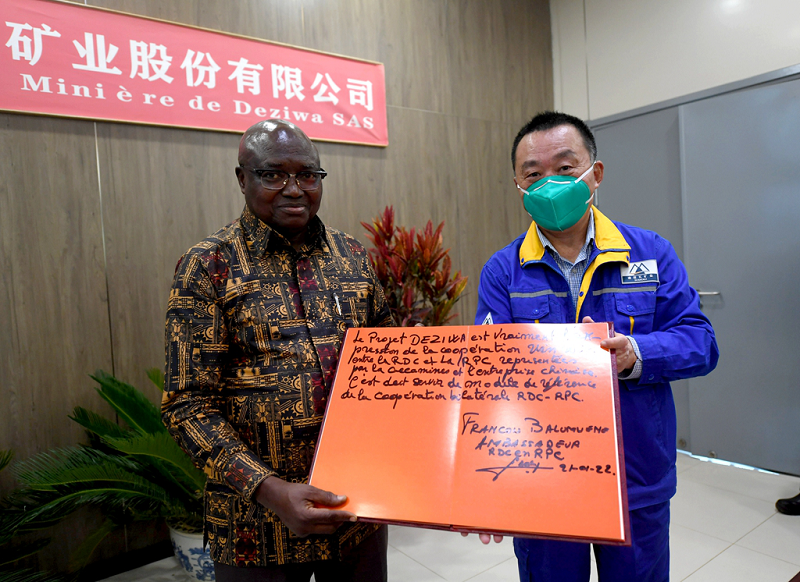 矿业股份有限公司
Minière de Deziwa SAS
Le Projet DEZIWA est vraiment l'
pression de la coopération
entre la RDC et la RPC représentée
par la Gecamines et l'entreprise chinoise.
C'est doit servir de modèle de référence
de la coopération bilatérale RDC-RPC.
FRANCOIS BALUMUENE
AMBASSADEUR
RDC en RPC
21-01-22.